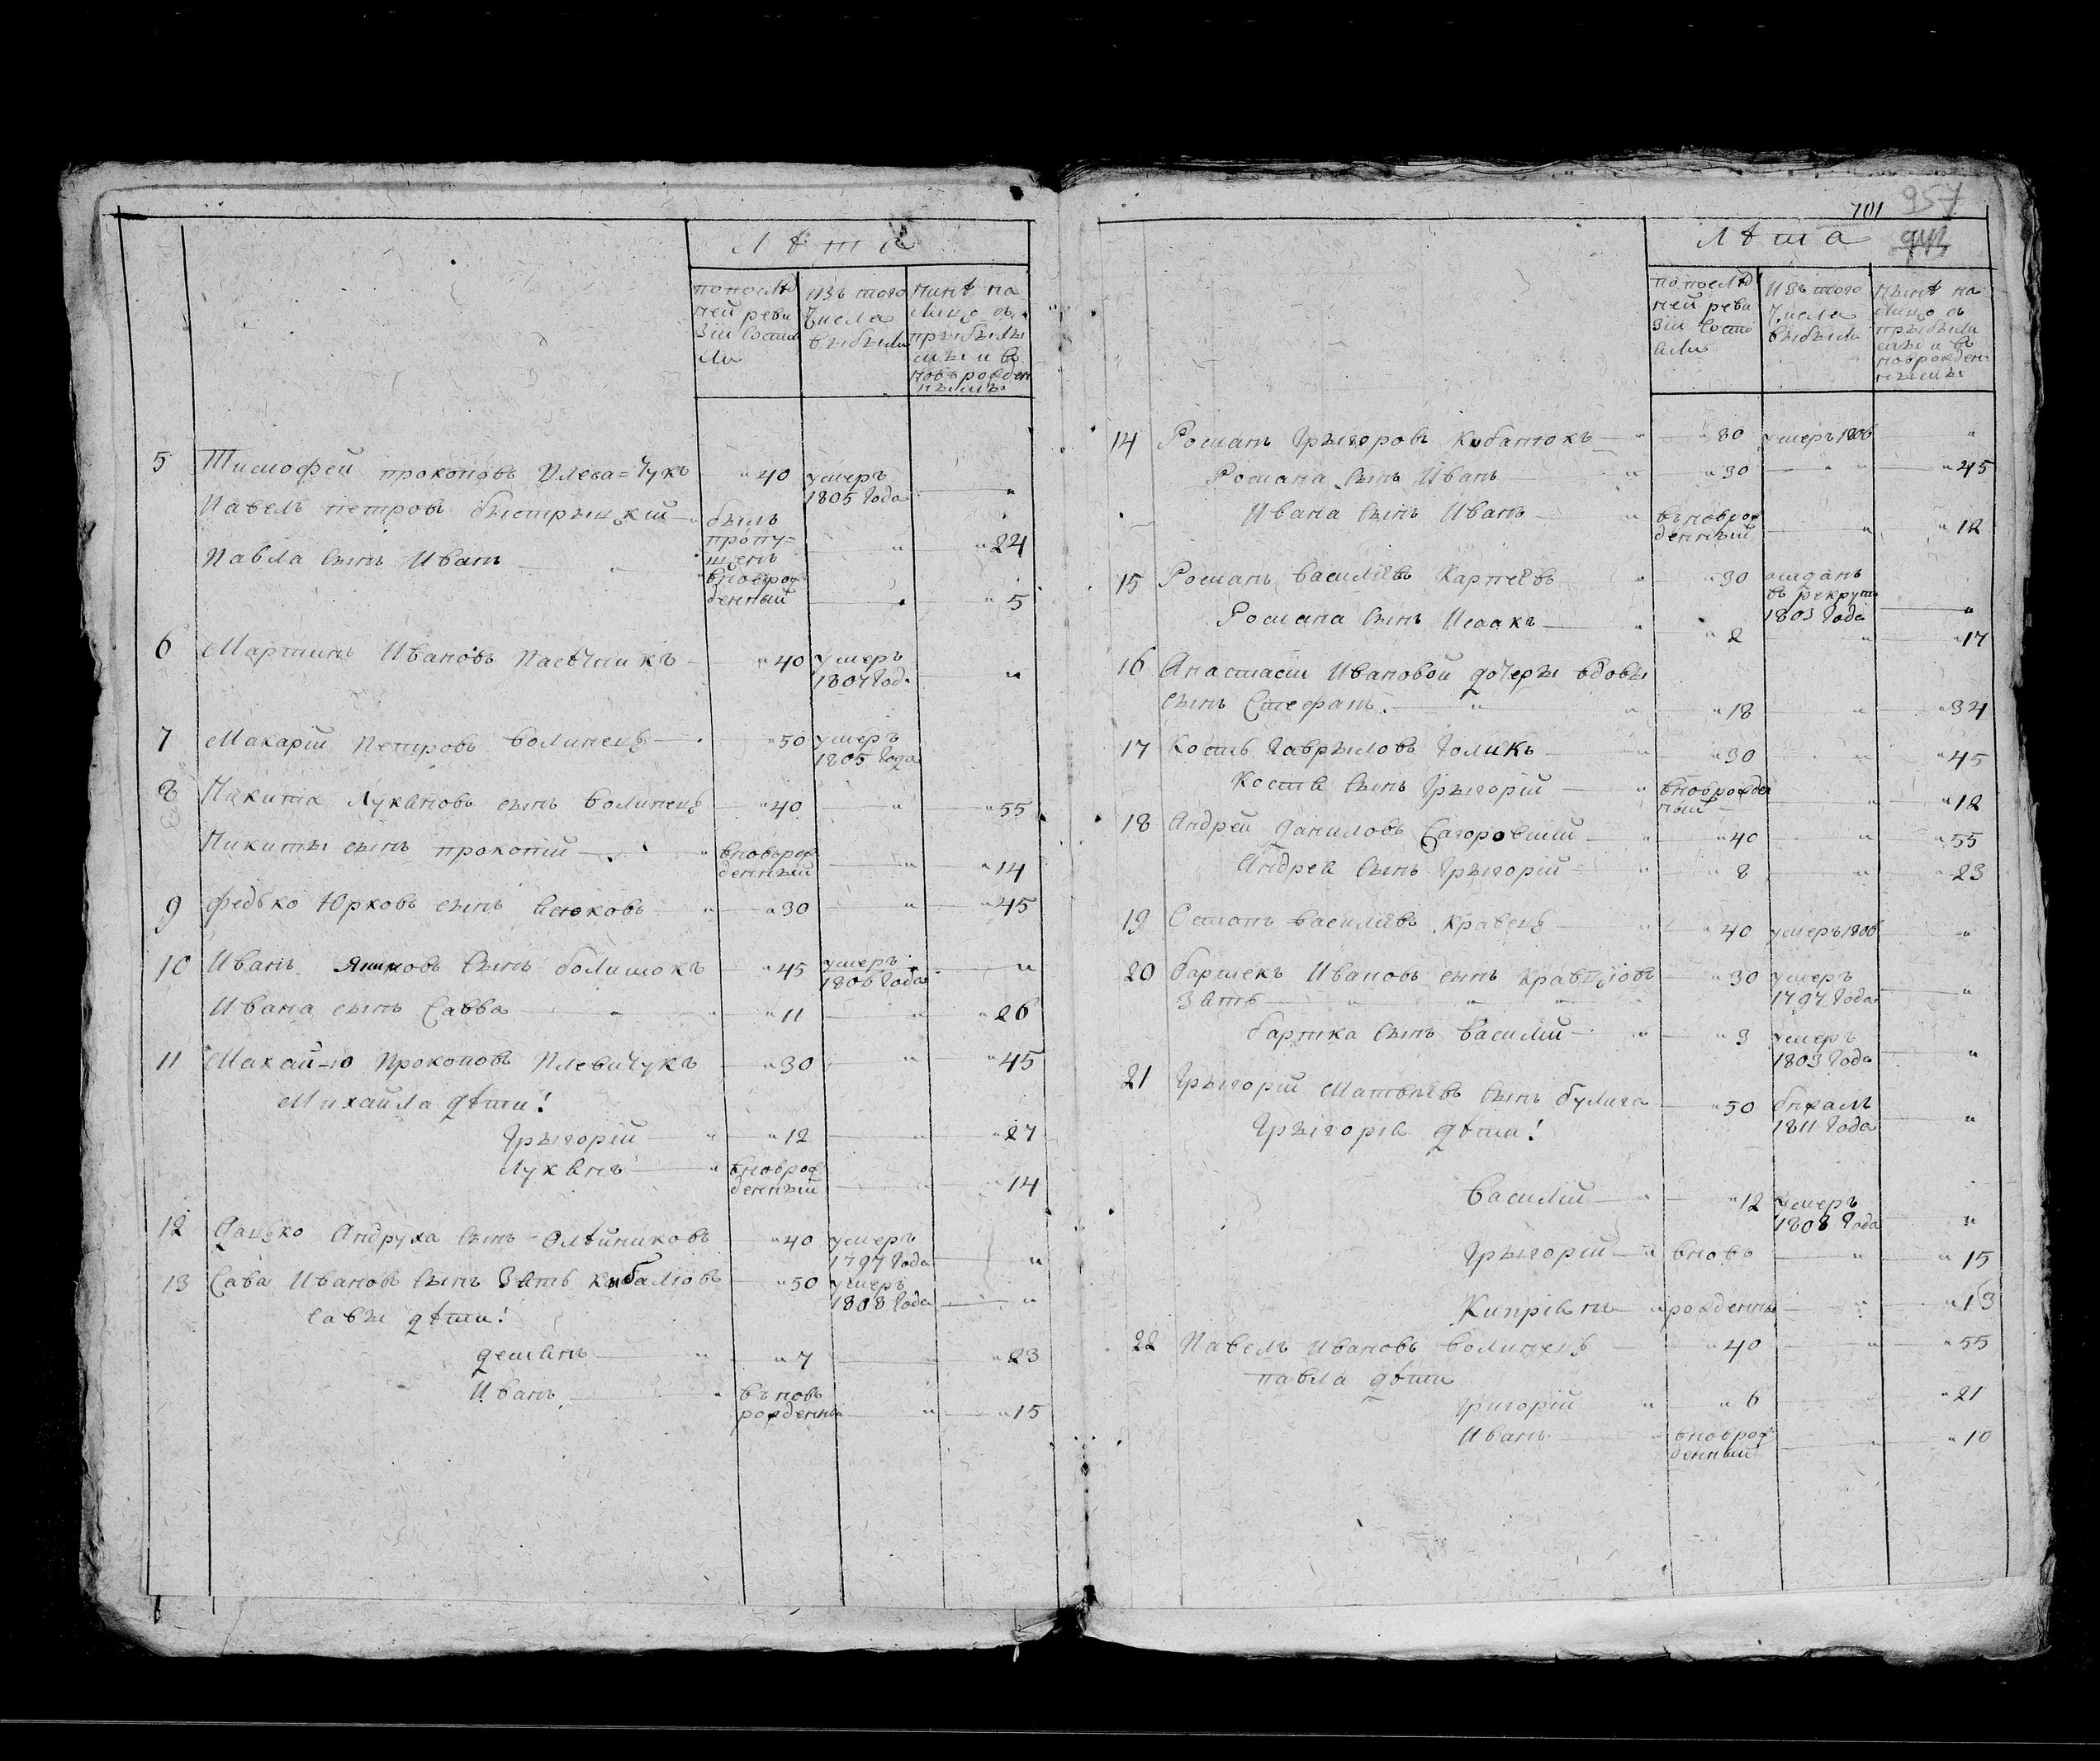 Лѣта
по послѣд
ней реви
зіи состоя
ли
изъ того
числа
выбыли
нынѣ на
лицо съ
прыбылы
мы и въ
новъ рожден
нымъ
5 Тимофей прокоповъ Плева=чукъ " 40 умеръ
1805 года "
Павелъ петровъ быстрыцкій " былъ
пропу=
щенъ " " 24
Павла сынъ Иванъ " вноврож
денный " 5
6 Мартинъ Ивановъ Пасѣчникъ " 40 умеръ
1807 год. "
7 Макарій Петровъ волинецъ " 50 умеръ
1805 года
8 Никита Лукяновъ сынъ волинецъ " 40 " " 55
Никиты сынъ прокопій " вноврож
денный " " 14
9 федько Юрковъ сынъ " " 30 " " 45
10 Иванъ сынъ " 45 умеръ
1806 года "
Ивана сынъ Савва " " " 11 " " 26
11 Прокоповъ Плевачукъ " 30 " " 45
Михайла дѣти!
Грыгорій " " 12 " " 27
Лукянъ " вноврож
денный " " 14
12 Дацко Андруха сынъ Олѣйниковъ " 40 умеръ
1797 года "
13 Сава Ивановъ сынъ Зять " 50 умеръ
1808 года "
савы дѣти!
демянъ " " 7 " " 23
Иванъ " въ новъ
рожденны " " 15
701 957
Лѣта
по послѣд
ней реви
зіи состо
яли
изъ того
числа
выбыли
нынѣ на
лицо съ
прыбылы
мы и въ
новрожден
нымы
14 Романъ Грыгоровъ " " 80 умеръ 1806 "
Романа сынъ Иванъ " " 30 " " " 45
Ивана сынъ Иванъ " вьноврож
денный " " 12
15 Романъ василіевъ Карпеевъ " " 30 отданъ
въ рекруты
1803 года "
Романа сынъ Исаакъ " " 2 " " 17
16 Анастасіи Ивановой дочеры вдовы
сынъ Стефанъ. " " " 18 " " 34
17 Кость Гаврыловъ Голикъ " " 30 " " 45
Костя сынъ Грыгорій " вноврожден
ный " " 12
18 Андрей даниловъ " " 40 " " 55
Андрея сынъ Грыгорій " " 8 " " 23
19 Остапъ василіевъ кравецъ " " 40 умеръ 1806 "
20 бартекъ Ивановъ сынъ кравцювъ " 30 умеръ
Зять " " " " 1797 года "
бартка сынъ василій " " 3 умеръ
1803 года "
21 Грыгорій Матвѣевъ сынъ булига " 50 бежалъ
1811 года "
Грыгорія дѣти!
василій " " 12 умеръ
1808 года "
Грыгорій " вновь " " 15
Кипріянъ " рожденны " " 13
22 Павелъ Ивановъ волинецъ " 40 " " 55
павла дѣти
григорій " " 6 " 21
Иванъ " вноврож
денный " " 10